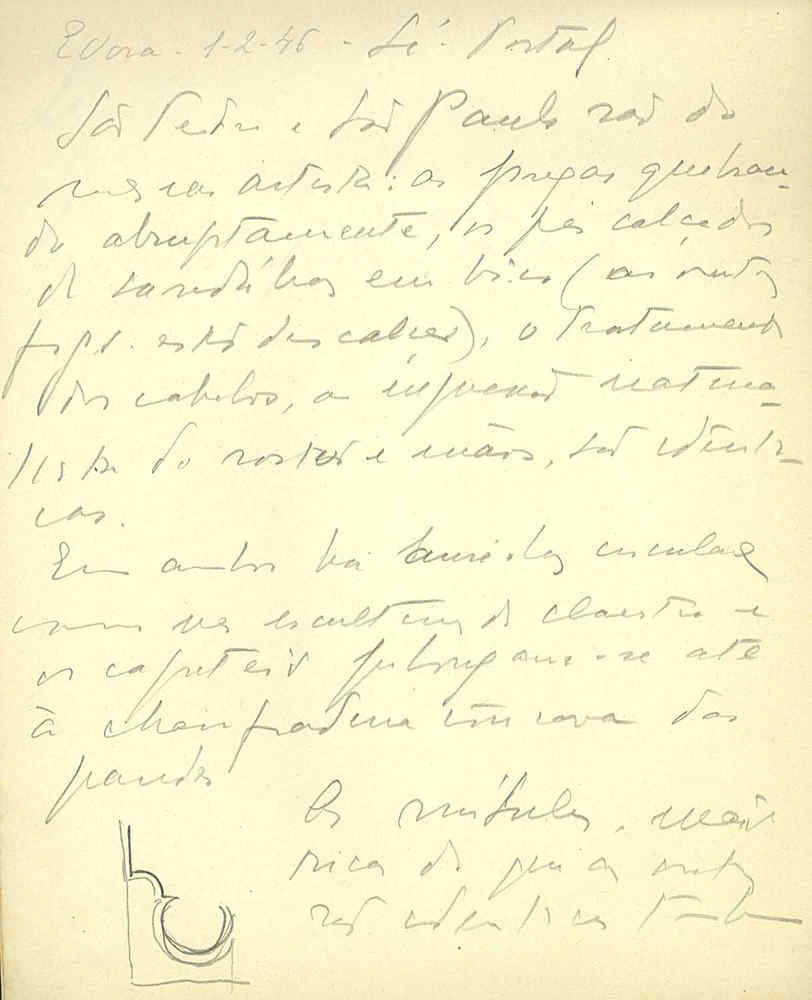 Evora - 1-2-46 - Sé - Portal
São Pedro e São Paulo são do
mesmo artista: as pregas quebran-
do abruptamente, os pés calçados
de sandálias em bico (as outras
figs. estão descalças), o tratamento
dos cabelos, a expressão natura-
lista do rosto e mãos, são identi-
cas.
Em ambos há aureolas circulares
como nas esculturas do claustro e
os capiteis prolongam-se até
à chanfradura concava das
paredes
As mísulas, mais
ricas do que as outras
são identicas tambem